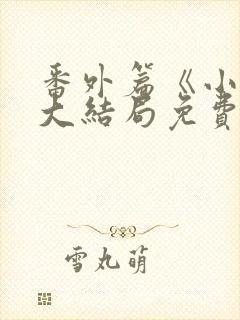 番外篇《小
大结局免费
雪丸萌